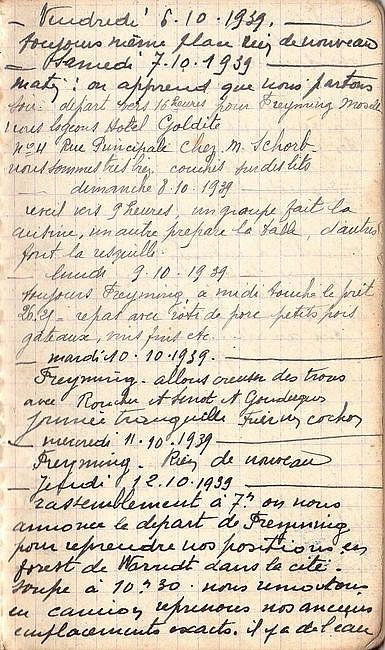 - Vendredi 6.10.1939. -
toujours même place Rien de nouveau
- Samedi 7.10.1939 -
matin : on apprend que nous partons
départ vers 16 heures pour Freyming Moselle
nous logeons Hotel Goldite
n° 41 Rue Principale chez M. Schorb
nous sommes très bien couchés sur des lits
- dimanche 8.10.1939 -
reveil vers 9 heures, un groupe fait la
cuisine, un autre prepare la table, d'autres
font la vaisselle.
- lundi 9.10.1939 -
toujours Freyming, à midi touche le prêt
repas avec roti de porc petits pois
gâteaux, vins fins etc...
- mardi 10.10.1939. -
Freyming - allons creuser des trous
avec et et
journée tranquille cochon
- mercredi 11.10.1939 -
Freyming. Rien de nouveau
- Jeudi 12.10.1939 -
rassemblement à 7h on nous
annonce le départ de Freyming
pour reprendre nos positions en
foret de Warndt dans la cité.
soupe à 10h30. nous remontons
en camion reprenons nos anciens
emplacements exacts. il y a de l'eau